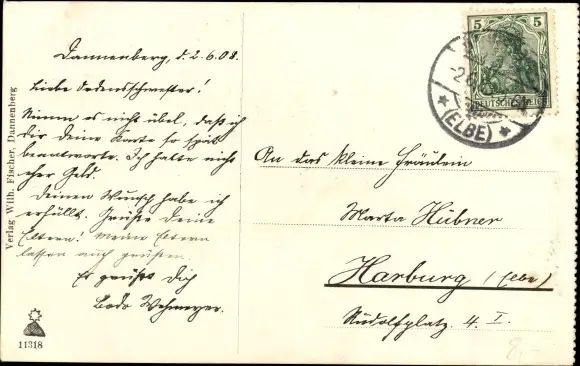 Dannenberg, d. 2.6.08.
Liebe Ordensschwester!
Nimm es nicht übel, daß ich
dir deine Karte so spät
beantworte. Ich hatte nicht
eher Geld.
Deinen Wunsch habe ich
erfüllt. Grüße deine
Eltern! Meine Eltern
lassen auch grüßen.
Es grüßt dich
Bodo Wehmeyer.
Verlag Wilh. Fischer, Dannenberg
11318
5 5
DEUTSCHES REICH
(ELBE)
An das kleine Fräulein
Marta Hübner
Harburg (Elbe)
Rudolfplatz. 4. I.
8,-